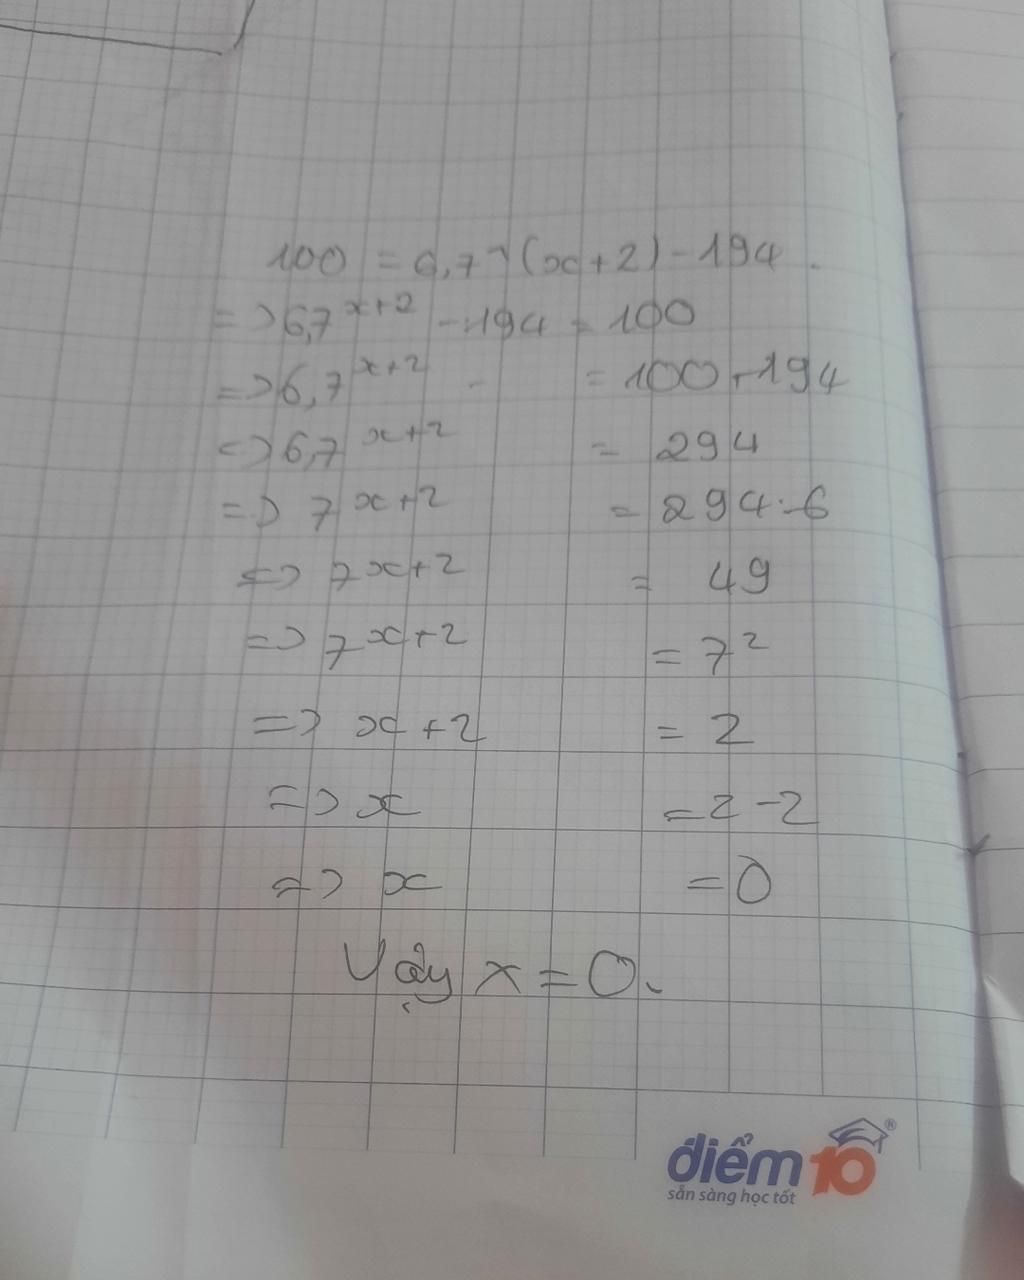 100 = 6,7^(x+2) - 194.
=> 6,7^x+2 - 194 = 100
=> 6,7^x+2 = 100 + 194
=> 6,7^x+2 = 294
=> 7^x+2 = 294 : 6
=> 7^x+2 = 49
=> 7^x+2 = 7^2
=> x + 2 = 2
=> x = 2 - 2
=> x = 0
Vậy x = 0.
điểm 10®
sẵn sàng học tốt